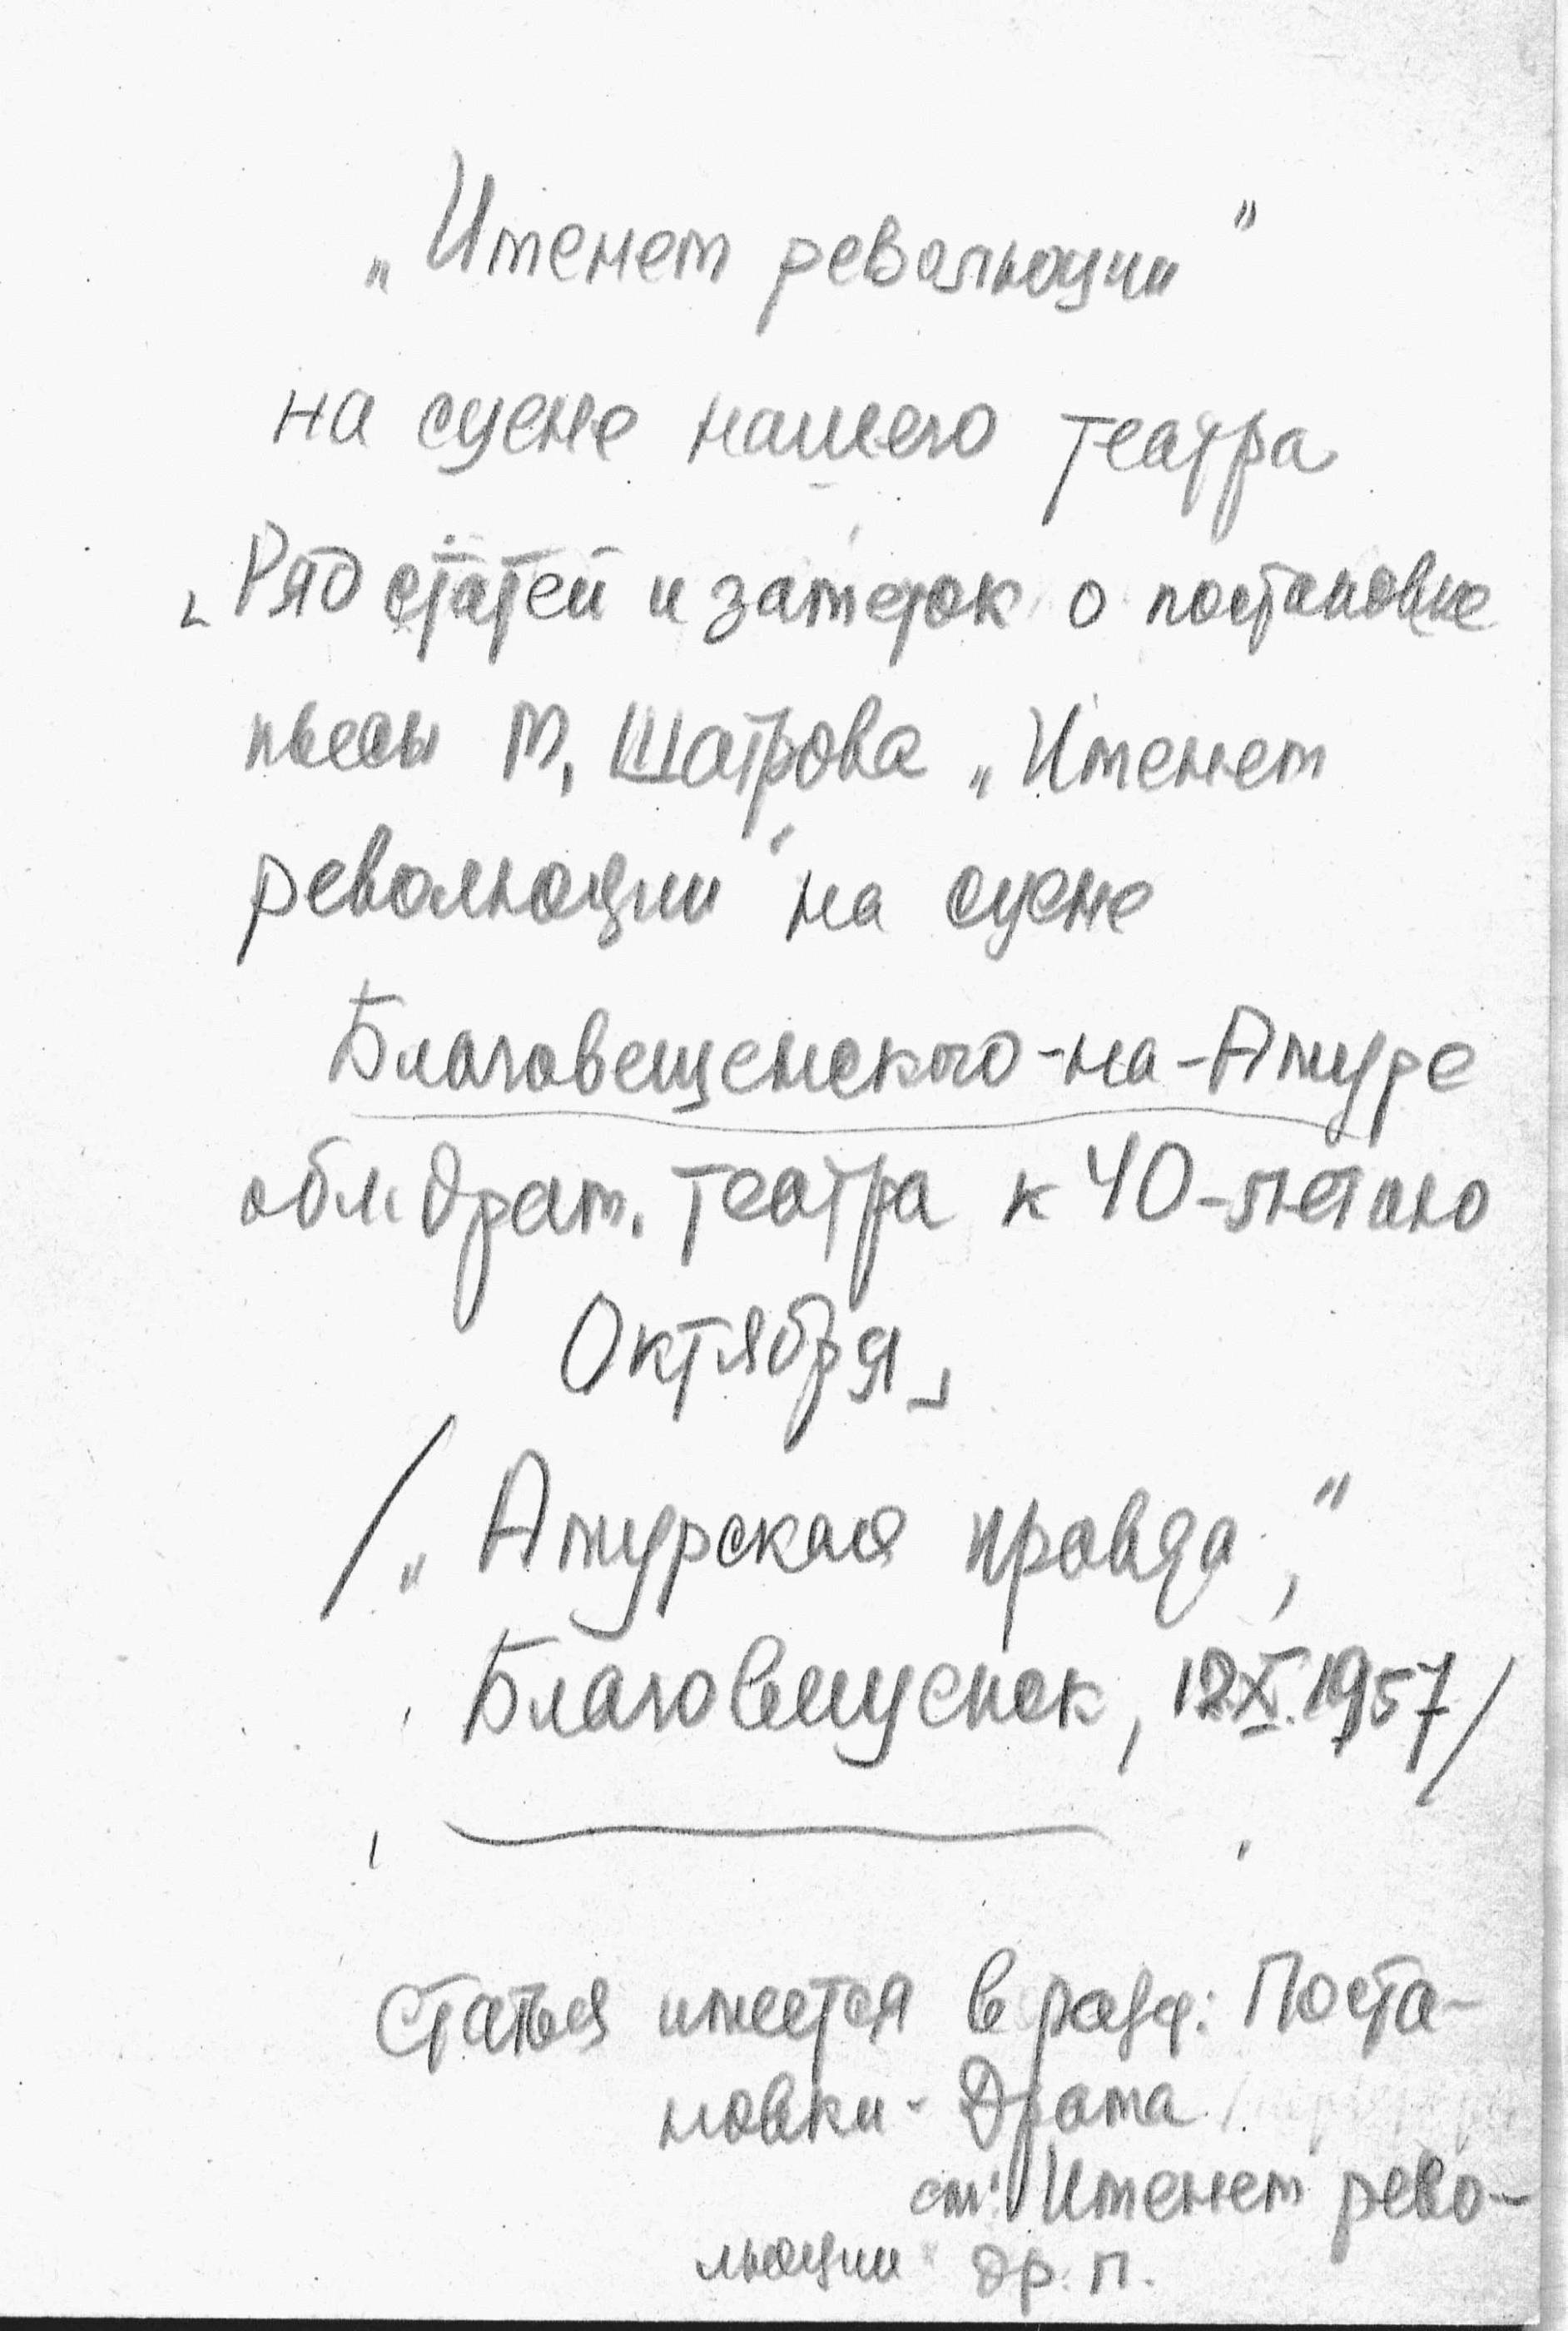 „Именем революции"
на сцене нашего театра
Ряд статей и заметок о постановке
пьесы М. Шатрова „Именем
революции" на сцене
Благовещенского-на-Амуре
обл. драм. театра к 40-летию
Октября
/„Амурская правда",
Благовещенск, 12 X. 1957/
Статья имеется в разд: Поста-
новки - Драма
см: Именем рево-
люции др. п.